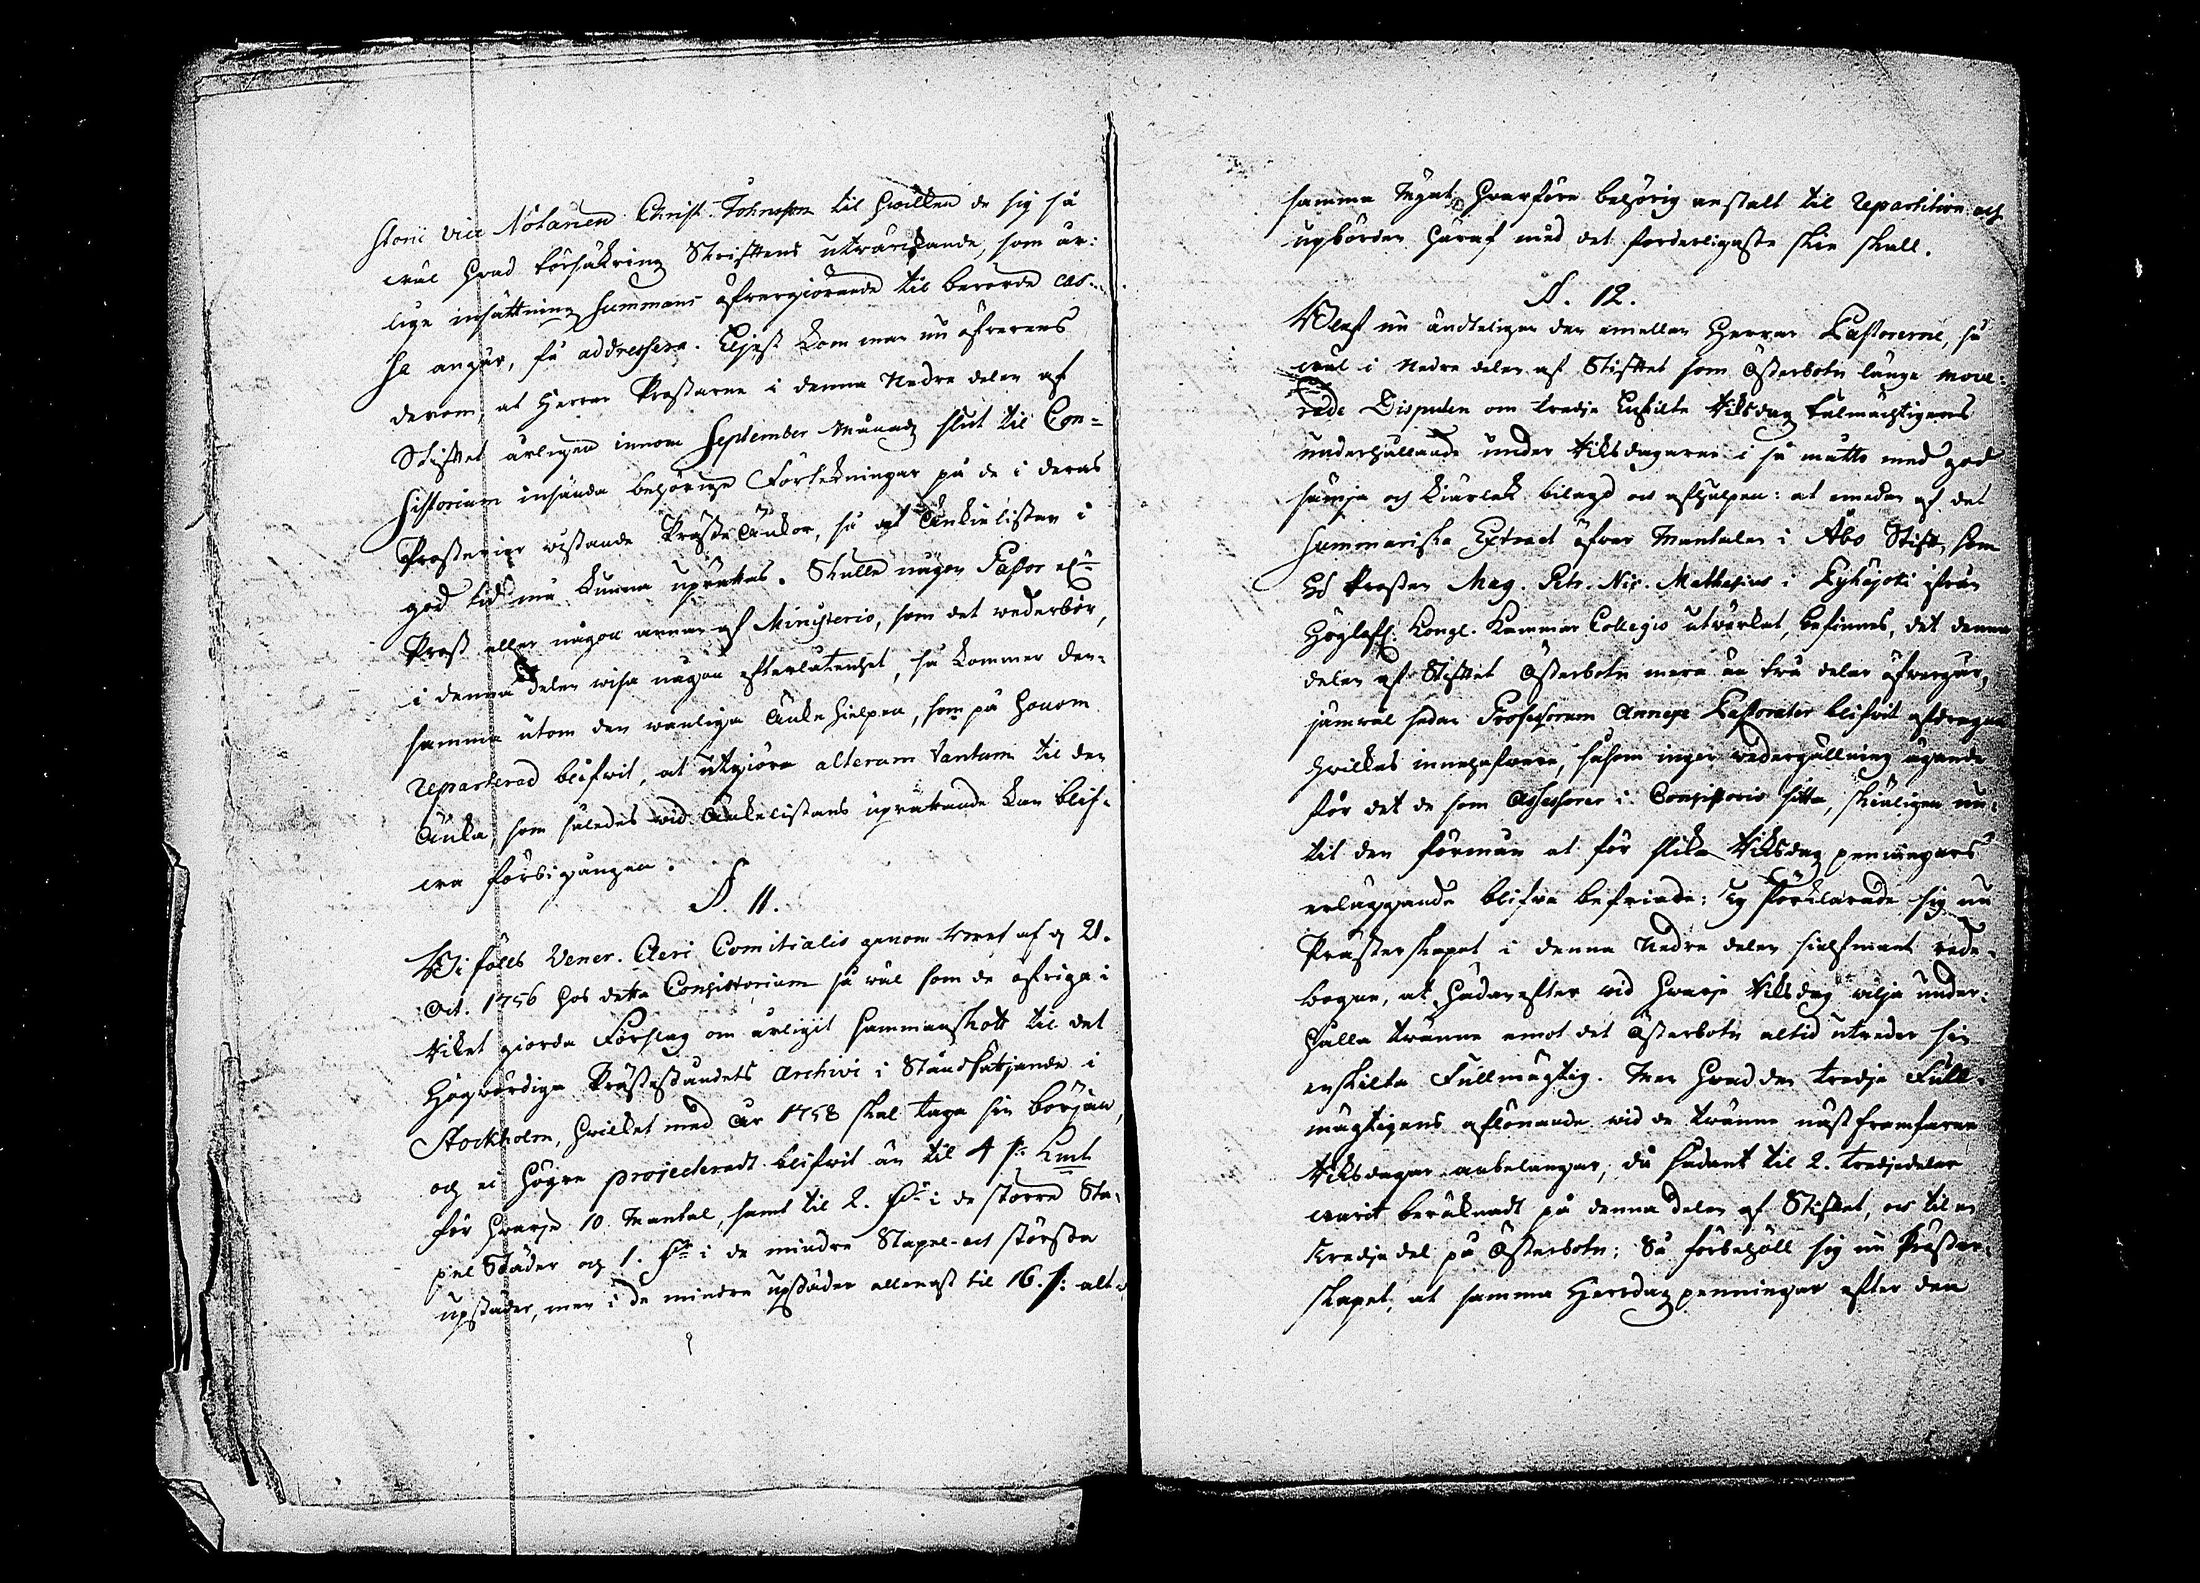 storii vice Notarien Christ. Johnsson til hwilken de sig så
wäl hwad försäkring Skriftens utwärkande, som är-
liga insättning summans öfwergiörande til berörde Cas-
sa angår, få addressera. Eljest kom man nu öfwerens
derom, at Herrar Prostarne i denna Nedre delen af
Stiftet årligen innom September Månads slut til Con-
sistorium insända behörige Förtekningar på de i deras
Prosterier wistande Präste Änkor, så at Änkielistan i
god tid må kunna uprättas. Skulle någon Pastor el:r
Prost eller någon annan af Ministerio, som det wederbör,
i denna delen wisa någon efterlåtenhet, så kommer den-
samma utom den wanliga Änke hielpen, som på honom
reparterad blifwit, at utgiöra alterum tantum til den
Änka, som således wid Änkelistans uprättande kan blif-
wa förbigången.
§. 11.
Wi följe Vener. Cleri Comitialis genom bref af d 21.
Oct. 1756 hos detta Consistorium så wäl som de öfriga i
Riket giorda Förslag om årligit sammanskott til det
Högwördiga Prästeståndets Archivi i Stånd sättjande i
Stockholm, hwilket med år 1758 skal taga sin början,
och ei högre projecteradt blifwit än til 4 s: Kmt
för hwarje 10 Mantal, samt til 2. Pl: i de större Sta-
pel Städer och 1. Pl: i de mindre Stapel- och största
upstäder, men i de mindre upstäder allenast til 16. s: alt.
samma Mynt, hwarföre behörig anstalt til repartition och
upbörden häraf med det forderligaste skie skall.
§. 12.
Blef nu ändteligen den emellan Herrar Pastorerne, så
wäl i Nedre delen af Stiftet som Österbotn länge move-
rade Disputen om tredje Enskilte Riksdag fulmächtigens
underhållande under Riksdagarne i så måtto med god
sämja och kiärlek bilagd och afhulpen: at emedan af det
Summariska Extract öfwer Mantalen i Åbo Stift, som
Hd Prosten Mag. Petr. Nic. Mathesius i Pyhäjoki ifrån
Höglofl: Kongl. Kammar Collegio utwärkat, befinnes, det denna
delen af Stiftet Österbotn mera än två delar öfwergår,
jämwäl sedan Professorum Annexe Pastorater blifwit afdragne
hwilkas innehafware, såsom ingen wedergällning ägande
för det de som Assessorer i Consistorio sitta, skiäligen nu-
tit den förmån at för slika Riksdags penningars
erläggande blifwa befriade; Ty förklarade sig nu
Prästerskapet i denna Nedre delen sielfmant rede-
bogne, at hädanefter wid hwarje Riksdag wilja under-
hålla twänne emot det Österbotn altid utreder sin
enskilta Fullmägtig. Men hwad den tredje Full-
mägtigens aflönande wid de twänne nästframfarne
Riksdagar anbelangar, då sådant til 2. tredjedelar
warit beräknadt på denna delen af Stiftet, och til en
tredjedel på Österbotn; Så förbehöll sig nu Präster-
skapet, at samma Herredags penningar efter den